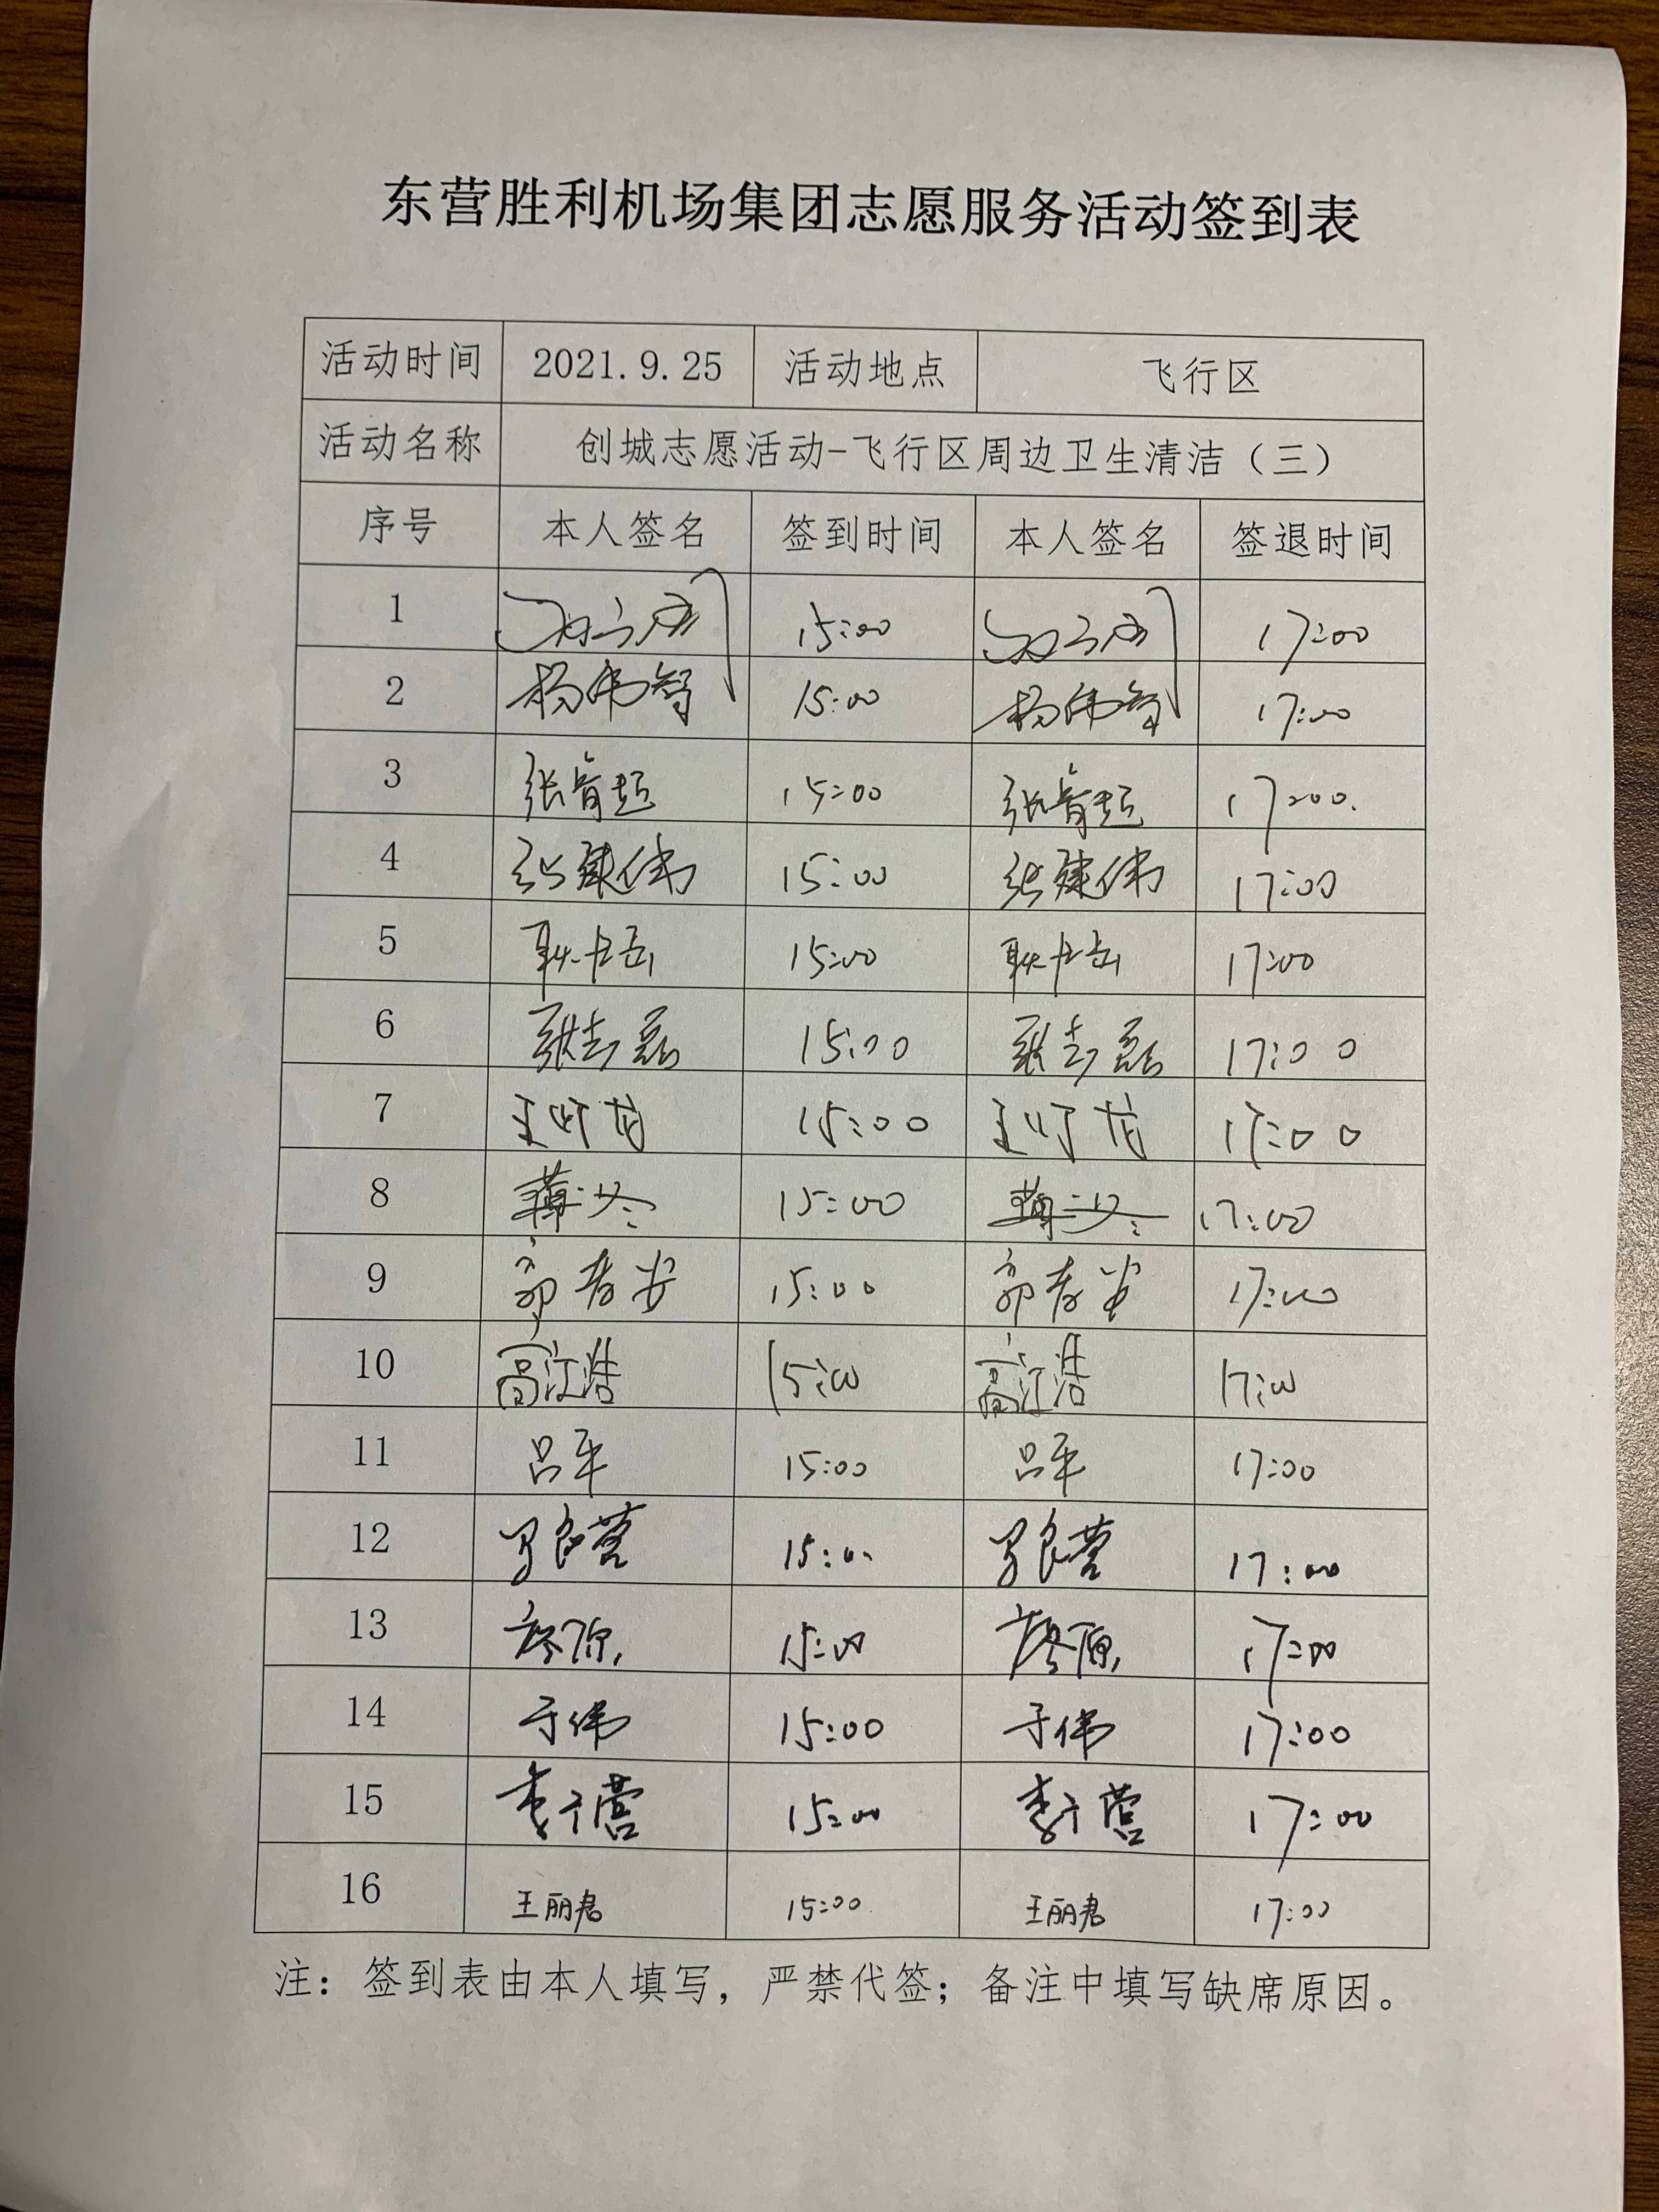 东营胜利机场集团志愿服务活动签到表
活动时间 2021.9.25 活动地点 飞行区
活动名称 创城志愿活动-飞行区周边卫生清洁（三）
序号 本人签名 签到时间 本人签名 签退时间
1 15:00 17:00
2 杨伟智 15:00 杨伟智 17:00
3 张育超 15:00 张育超 17:00.
4 张建伟 15:00 张建伟 17:00
5 15:00 17:00
6 张志磊 15:00 张志磊 17:00
7 15:00 17:00
8 15:00 17:00
9 郭孝安 15:00 郭孝安 17:00
10 高江浩 15:00 高江浩 17:00
11 吕平 15:00 吕平 17:00
12 15:00 17:00
13 15:00 17:00
14 于伟 15:00 于伟 17:00
15 李广营 15:00 李广营 17:00
16 王丽君 15:00 王丽君 17:00
注：签到表由本人填写，严禁代签；备注中填写缺席原因。